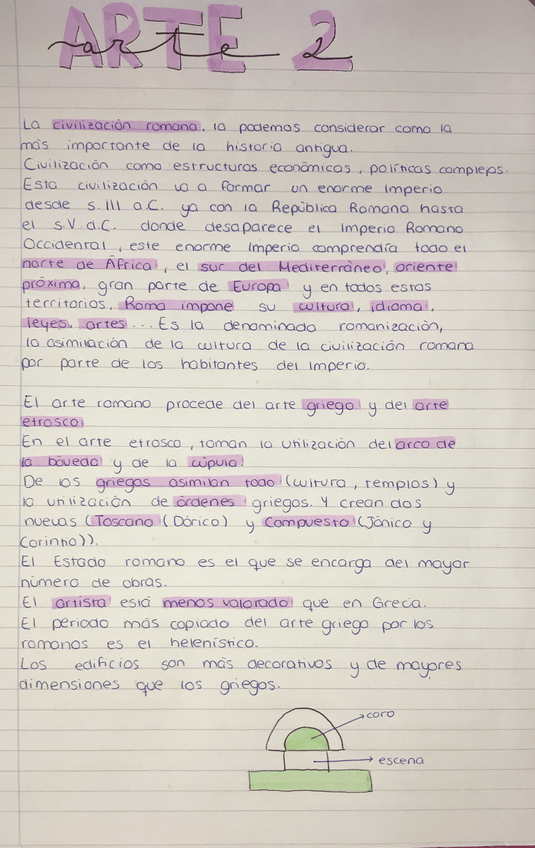 ARTE 2
arte
La civilización romana, la podemos considerar como la
más importante de la historia antigua.
Civilización como estructuras económicas, políticas complejas.
Esta civilización va a formar un enorme Imperio
desde s.III a.C. ya con la República Romana hasta
el s.V d.C. donde desaparece el Imperio Romano
Occidental, este enorme Imperio comprendía todo el
norte de África, el sur del Mediterráneo, oriente
próximo, gran parte de Europa y en todos estos
territorios, Roma impone su cultura, idioma,
leyes, artes... Es la denominada romanización,
la asimilación de la cultura de la civilización romana
por parte de los habitantes del Imperio.
El arte romano procede del arte griego y del arte
etrosco.
En el arte etrosco, toman la utilización del arco de
la bóveda y de la cúpula.
De los griegos asimilan todo (cultura, templos) y
la utilización de órdenes griegos. Y crean dos
nuevas (Toscano (Dórico) y Compuesto (Jónico y
Corintio)).
El Estado romano es el que se encarga del mayor
número de obras.
El artista está menos valorado que en Grecia.
El periodo más copiado del arte griego por los
romanos es el helenístico.
Los edificios son más decorativos y de mayores
dimensiones que los griegos.
coro
escena